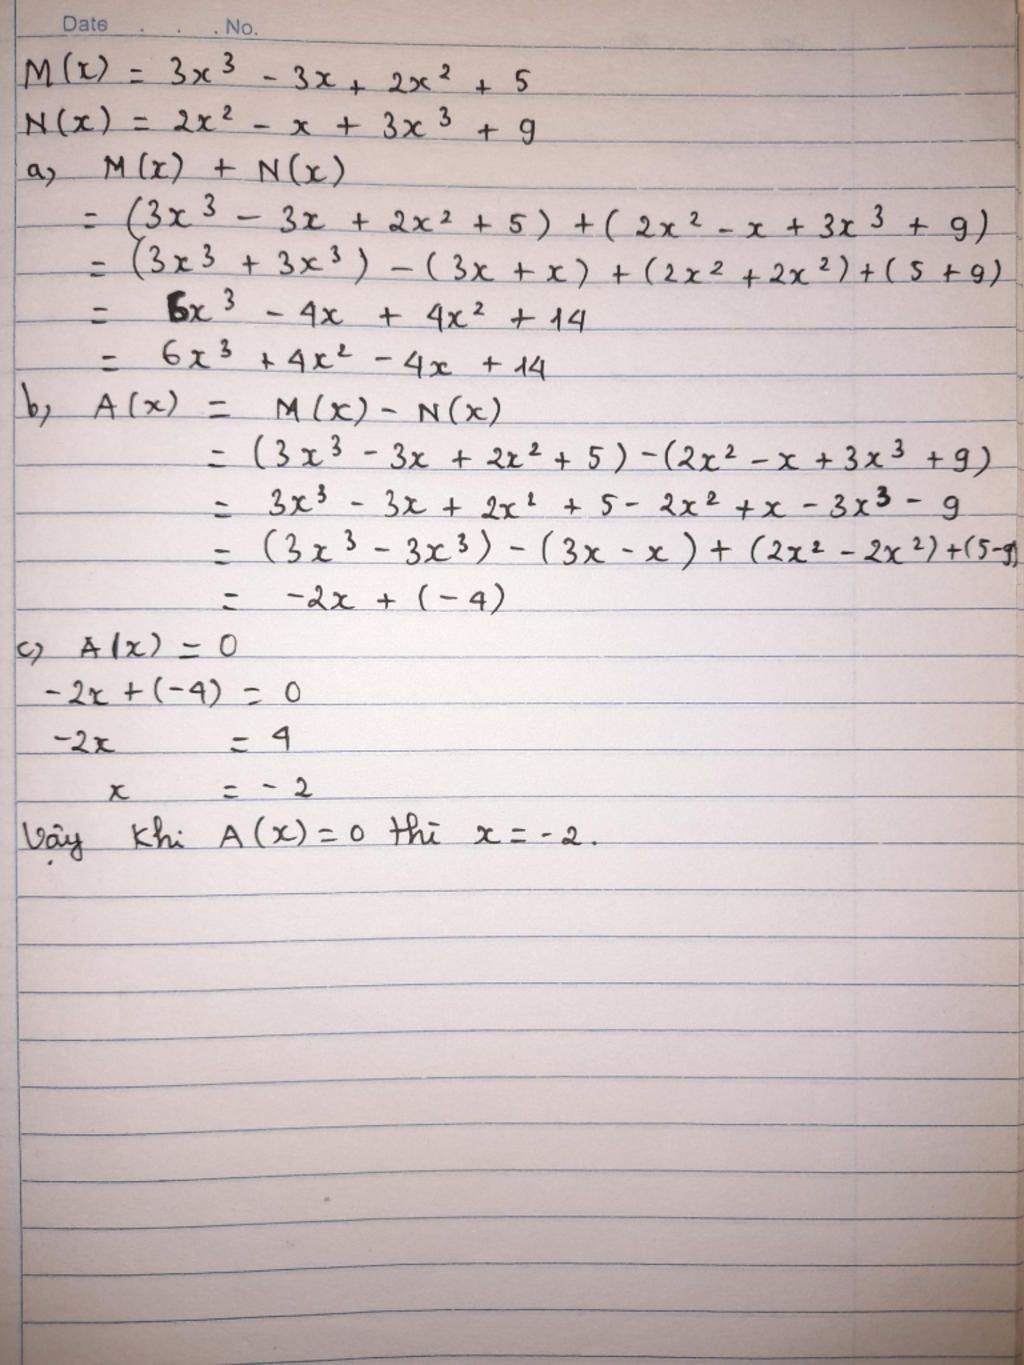 Date . . . No.
M(x) = 3x³ - 3x + 2x² + 5
N(x) = 2x² - x + 3x³ + 9
a, M(x) + N(x)
= (3x³ - 3x + 2x² + 5) + (2x² - x + 3x³ + 9)
= (3x³ + 3x³) - (3x + x) + (2x² + 2x²) + (5 + 9)
= 6x³ - 4x + 4x² + 14
= 6x³ + 4x² - 4x + 14
b, A(x) = M(x) - N(x)
= (3x³ - 3x + 2x² + 5) - (2x² - x + 3x³ + 9)
= 3x³ - 3x + 2x² + 5 - 2x² + x - 3x³ - 9
= (3x³ - 3x³) - (3x - x) + (2x² - 2x²) + (5-9)
= -2x + (-4)
c, A(x) = 0
-2x + (-4) = 0
-2x = 4
x = -2
Vậy khi A(x) = 0 thì x = -2.